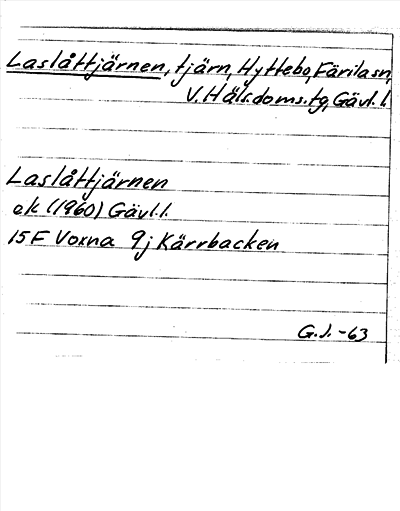 Laslåttjärnen, tjärn, Hyttebo, Färila sn,
V. Häls. doms. tg, Gävl. l.
Laslåttjärnen
ek (1960) Gävl. l.
15 F Voxna 9j Kärrbacken
G.J. -63